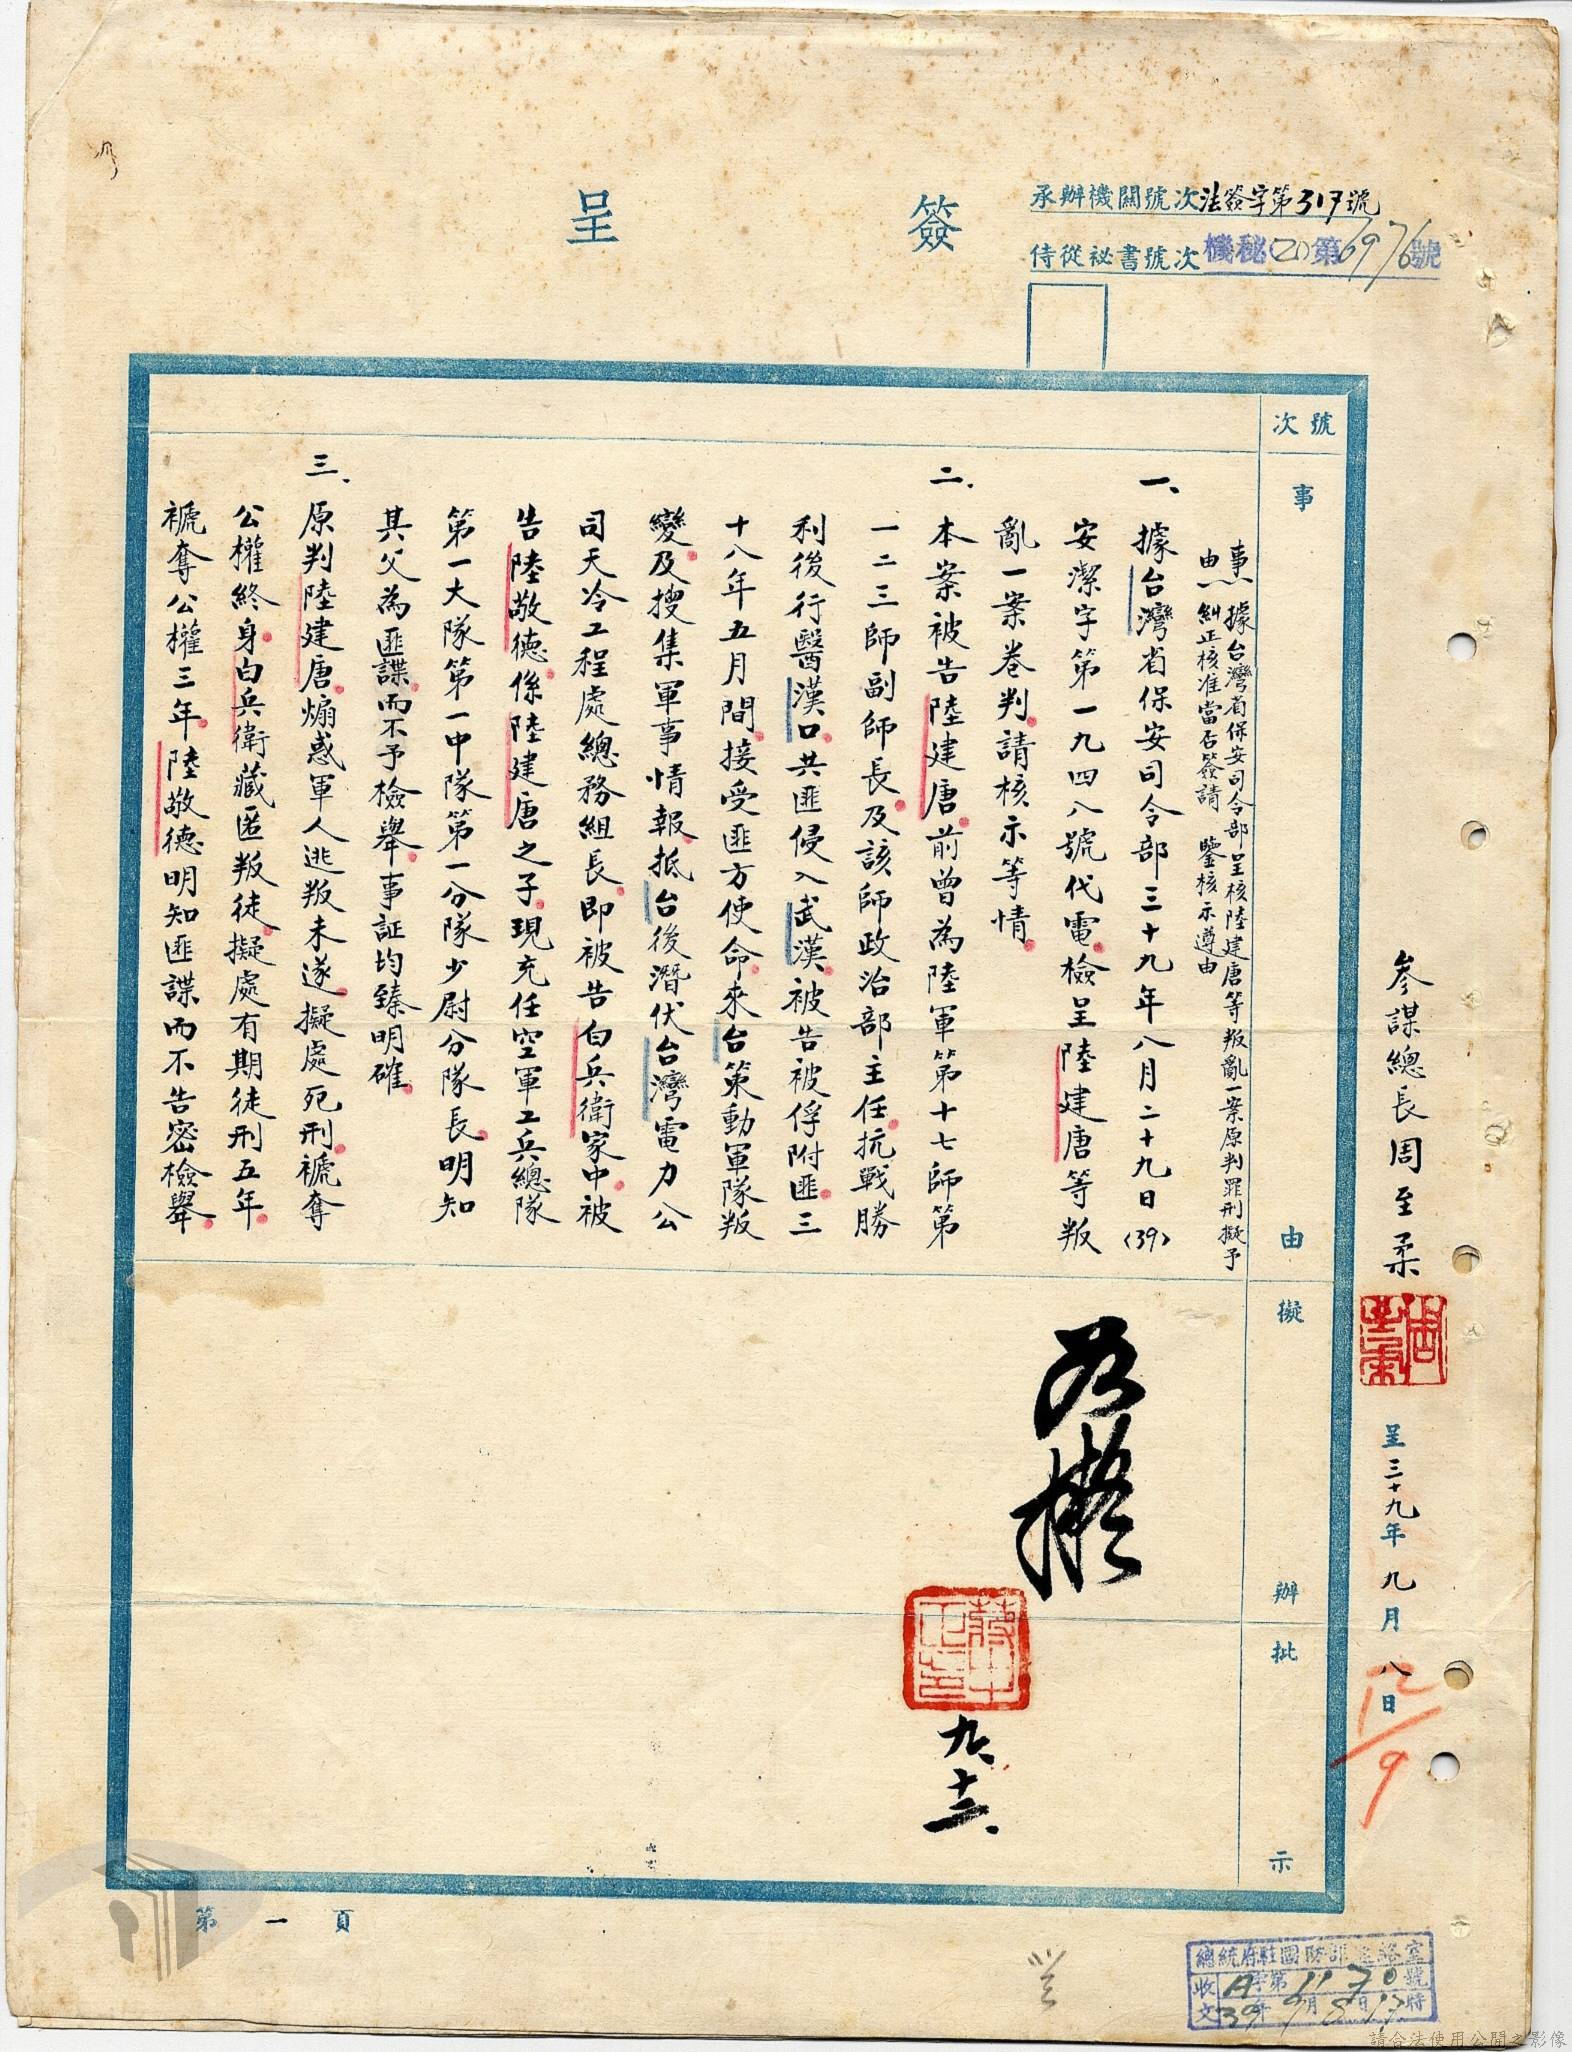 簽呈
承辦機關號次法簽字第317號
侍從祕書號次機秘(乙)第6976號
參謀總長周至柔
呈三十九年九月八日
12/9
號次
事由
擬辦
批示
事由:據台灣省保安司令部呈核陸建唐等叛亂一案原判罪刑擬予
糾正核准當否簽請 鑒核示遵由
一、據台灣省保安司令部三十九年八月二十九日(39)
安潔字第一九四八號代電檢呈陸建唐等叛
亂一案卷判請核示等情
二、本案被告陸建唐前曾為陸軍第十七師第
一二三師副師長及該師政治部主任抗戰勝
利後行醫漢口共匪侵入武漢被告被俘附匪三
十八年五月間接受匪方使命來台策動軍隊叛
變及搜集軍事情報抵台後潛伏台灣電力公
司天冷工程處總務組長即被告白兵衛家中被
告陸敬德係陸建唐之子現充任空軍工兵總隊
第一大隊第一中隊第一分隊少尉分隊長明知
其父為匪諜而不予檢舉事証均臻明確
三、原判陸建唐煽惑軍人逃叛未遂擬處死刑褫奪
公權終身白兵衛藏匿叛徒擬處有期徒刑五年
褫奪公權三年陸敬德明知匪諜而不告密檢舉
如擬
蔣中正印
九、十三、
第一頁
總統府駐國防部連絡室
收文A字第1170號
39年9月8日17時
請合法使用公開之影像